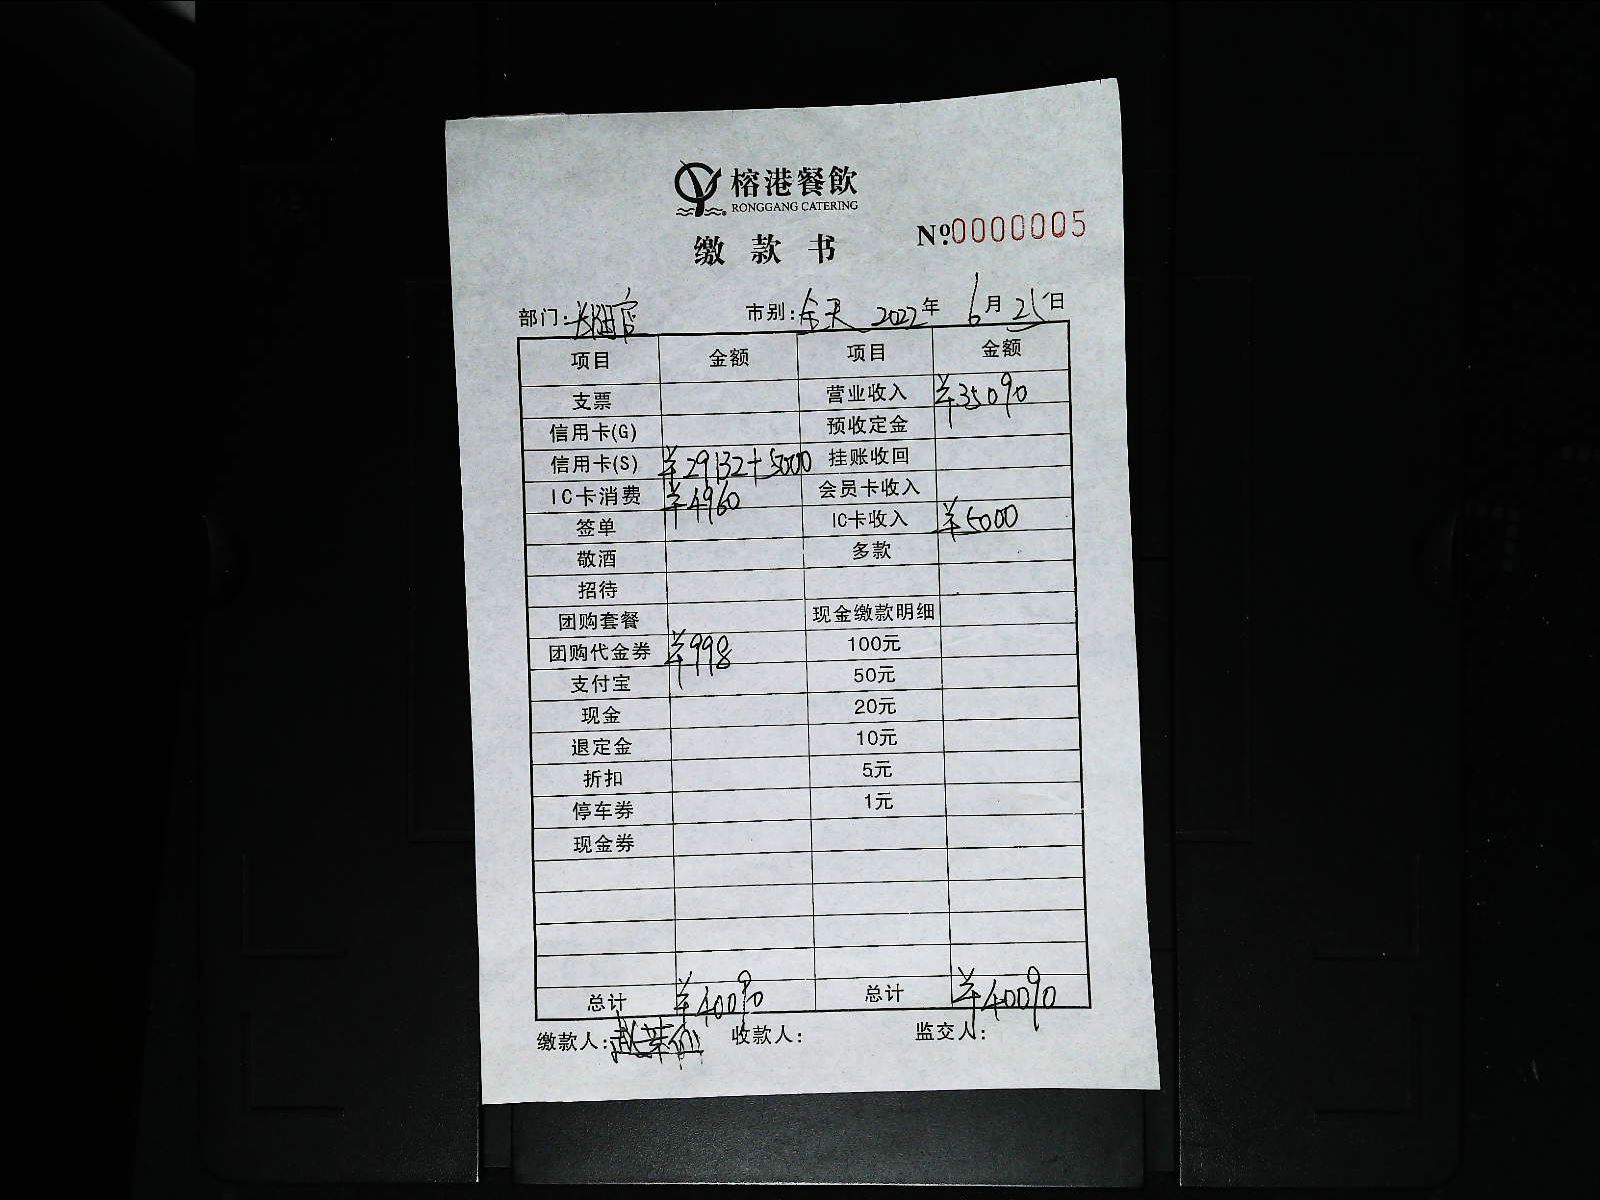 榕港餐飲
RONGGANG CATERING
缴款书 №0000005
部门: 市别:全天 2022年 6月25日
项目 金额 项目 金额
支票 营业收入 ¥35090
信用卡(G) 预收定金
信用卡(S) ¥29132+5000 挂账收回
IC卡消费 ¥4960 会员卡收入
签单 IC卡收入 ¥5000
敬酒 多款
招待
团购套餐 现金缴款明细
团购代金券 ¥998 100元
支付宝 50元
现金 20元
退定金 10元
折扣 5元
停车券 1元
现金券
总计 ¥40090 总计 ¥40090
缴款人: 收款人: 监交人: